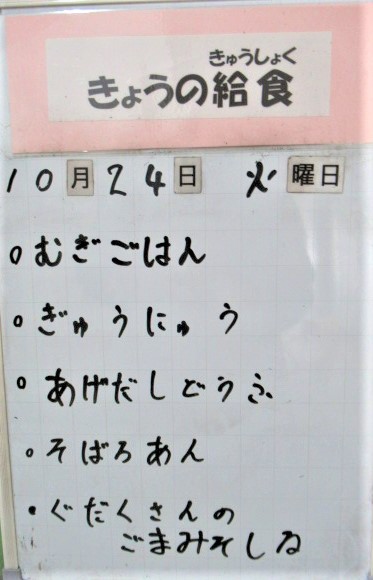 きゅうしょく
きょうの給食
10月24日 火曜日
○むぎごはん
○ぎゅうにゅう
○あげだしどうふ
○そばろあん
・ぐだくさんの
ごまみそしる